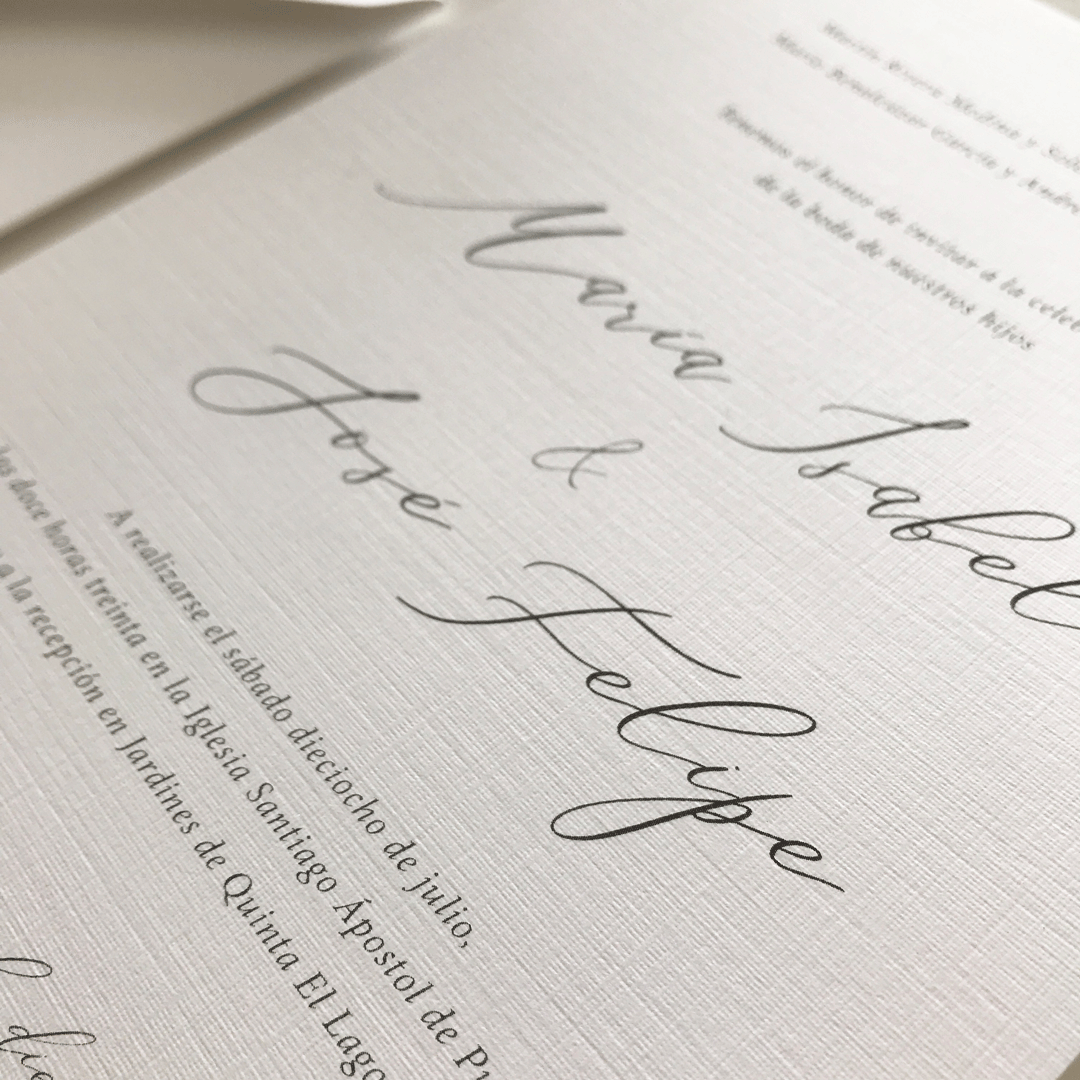 Medina y
García y
Tenemos el honor de invitar a la
de la boda de nuestros hijos
María Isabel
&
José Felipe
A realizarse el sábado dieciocho de julio,
las doce horas treinta en la Iglesia Santiago Ápostol de
a la recepción en Jardines de Quinta El Lago